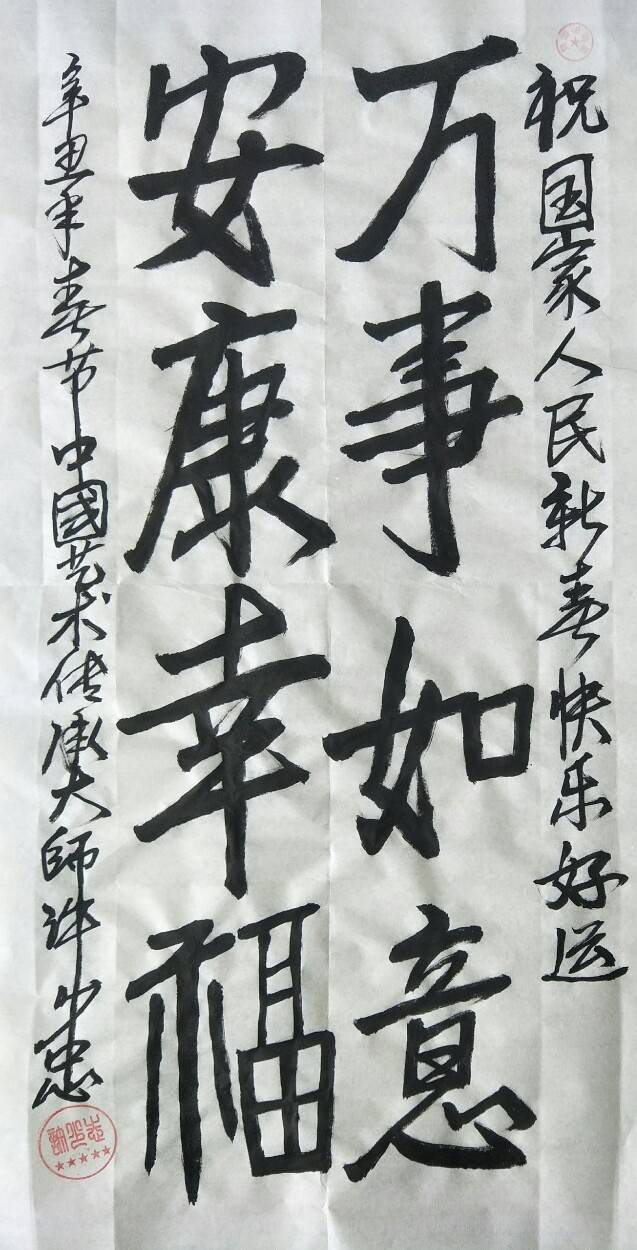 祝国家人民新春快乐好运
万事如意
安康幸福
辛丑年春节中國艺术传承大師许山忠